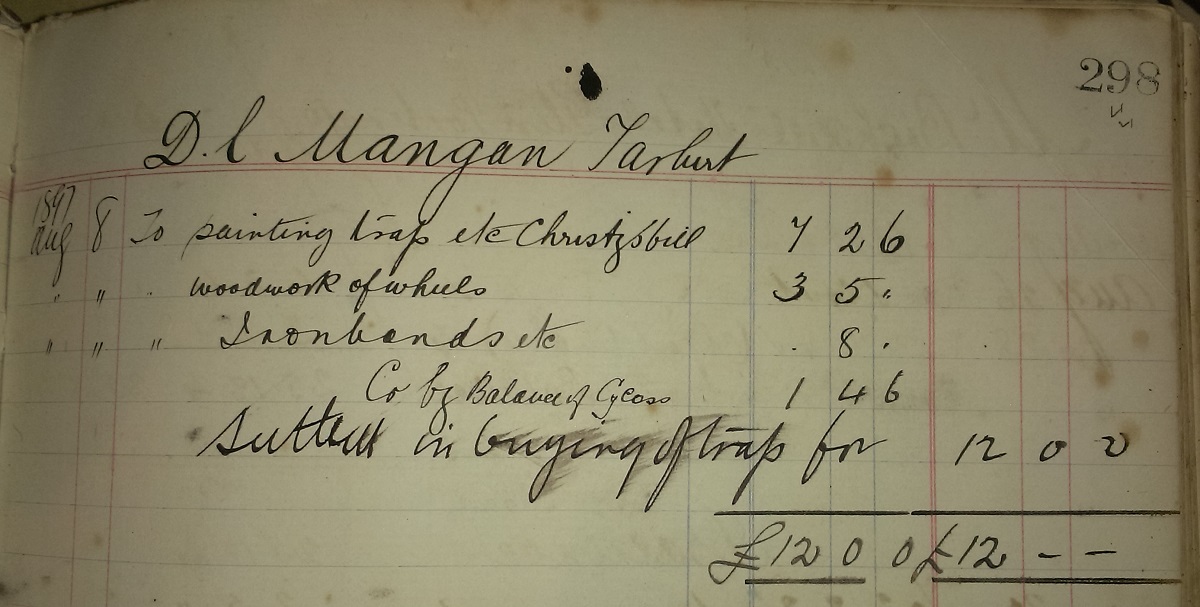 298
D. C Mangan Tarbert
1897
Aug 8 To painting trap etc bill 7 2 6
" " " woodwork of wheels 3 5 "
" " " Ironbands etc . 8 .
Co by Balance of 1 4 6
Settled in buying of trap for 12 0 0
£12 0 0 £12 - -